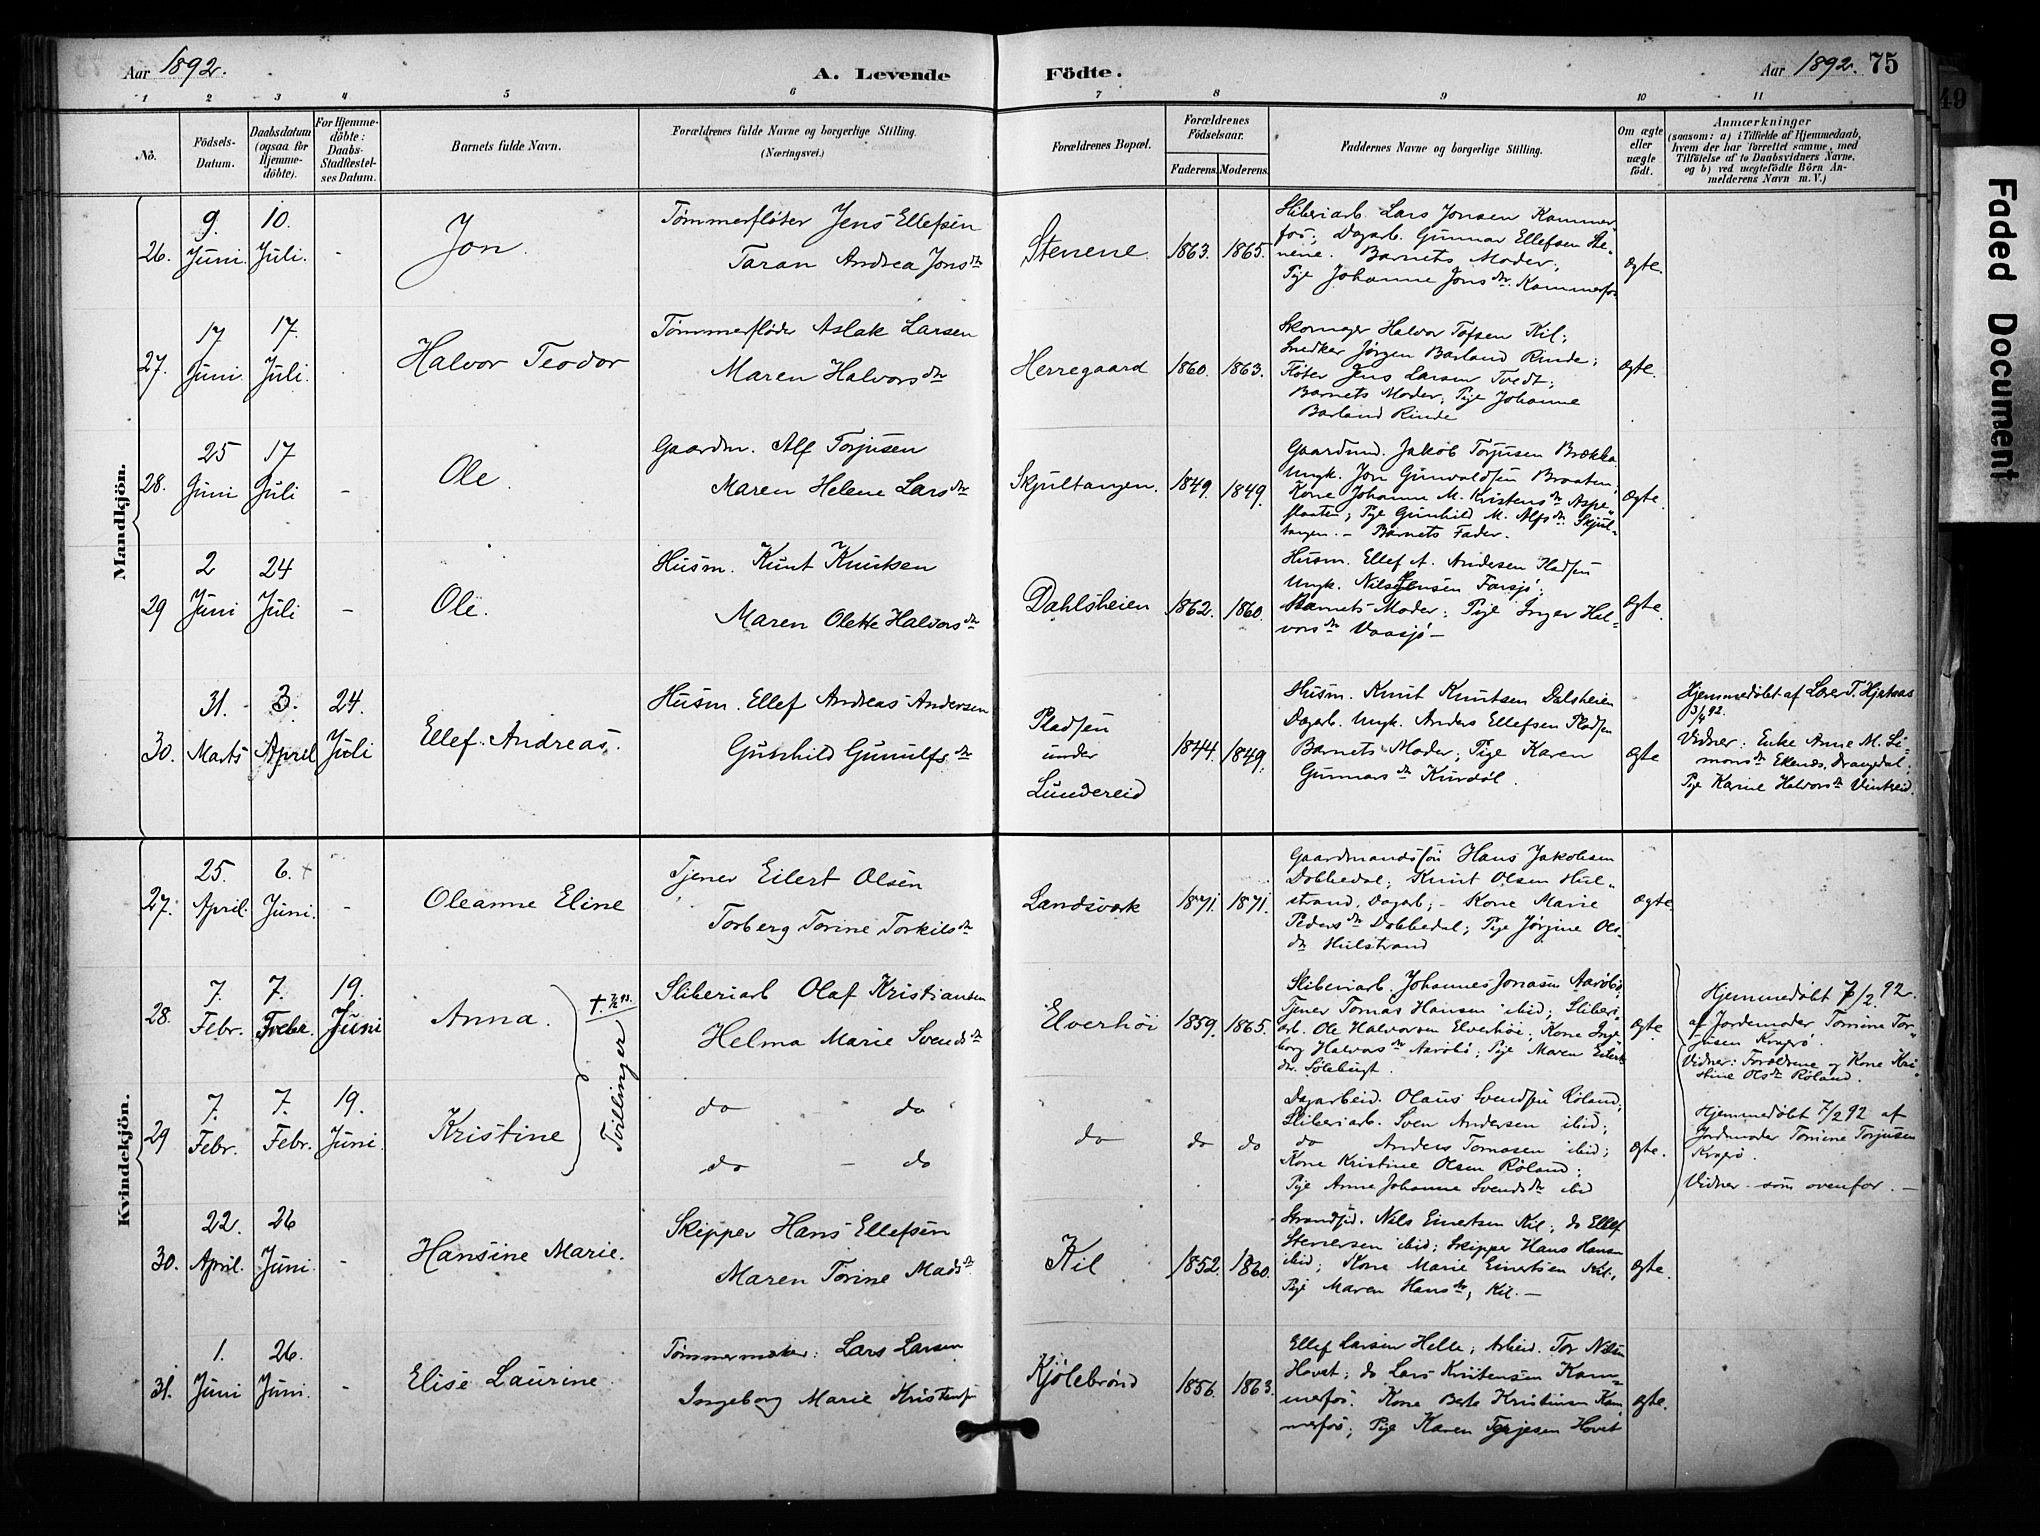 Aar 1892. A. Levende Födte. Aar 1892. 75
49
Faded Document
1 2 3 4 5 6 7 8 9 10 11
No.
Födsels-
Datum.
Daabsdatum
(ogsaa for
Hjemme-
döbte).
For Hjemme-
döbte:
Daabs-
Stadfæstel-
ses Datum.
Barnets fulde Navn.
Forældrenes fulde Navne og borgerlige Stilling.
(Næringsvei.)
Forældrenes Bopæl.
Forældrenes
Födselsaar.
Faderens. Moderens.
Faddernes Navne og borgerlige Stilling.
Om ægte
eller
uægte
födt.
Anmærkninger
(saasom: a) i Tilfælde af Hjemmedaab,
hvem der har forrettet samme, med
Tilföielse af to Daabsvidners Navne,
og b) ved uægtefödte Börn An-
melderens Navn m. V.)
Mandkjön.
26.
9.
Juni
10.
Juli.
-
Jon
Tömmerflöter Jens Ellefsen
Taran Andrea Jonsdtr
Stenene.
1863. 1865.
Sliberiarb Lars Jonsen Kammer
fos; Dagarb. Gunnar Ellefsen Ste-
nene. Barnets Moder;
Pige Johanne Jonsdtr Kammerfos
ægte.
27.
17
Juni
17.
Juli.
Halvor Teodor
Tömmerflöder Aslak Larsen
Maren Halvorsdtr
Herregaard
1860. 1863.
Skomager Halvor Tofsen Kil;
Snedker Jørgen Barland Rinde;
Jens Larsen Tvedt;
Barnets Moder; Pige Johanne
Barland Rinde
ægte.
28.
25
Juni
17
Juli
-
Ole.
Gaardm. Alf Torjusen
Maren Helene Larsdtr
Skjultangen.
1849. 1849.
Gaardmd. Jakob Torjusen Brækka
Ungk. Jon Gunvaldsen Braaten;
Kone Johanne M. Kristensdtr Aspe-
flaaten; Pige Gunhild M. Alfsdtr Skjul-
tangen. - Barnets Fader.
ægte.
29
2
Juni
24
Juli
-
Ole.
Husm. Knut Knutsen
Maren Olette Halvorsdtr
Dahlsheien
1862. 1860.
Husm. Ellef A. Andersen Pladsen
Ungk. Nils Jensen Farsjø;
Barnets Moder; Pige Inger Hal-
vorsdtr Vaasjø -
ægte.
30.
31.
Marts
3.
April
24.
Juli
Ellef Andreas.
Husm. Ellef Andreas Andersen
Gunhild Gunulfsdtr
Pladsen
under
Lundereid
1844. 1849.
Husm. Knut Knutsen Dalsheien
Dagarb. Ungk. Anders Ellefsen Pladsen
Barnets Moder; Pige Karen
Gunnarsdtr Kurdøl.
ægte
Hjemmedøbt af T. Hjelsaas
3/4 92.
Vidner: Enke Anne M. Si-
monsdtr Ekenæs, Drangedal;
Pige Karine Halvorsdtr
Kvindekjön.
27.
25.
April.
6.
Juni.
-
Oleanne Eline
Tjener Eilert Olsen
Torberg Torine Torkilsdtr
Landsværk
1871. 1871.
Gaardmandssøn Hans Jakobsen
Dobbedal; Knut Olsen Hul-
strand, Dagarb; - Kone Marie
Pedersdtr Dobbedal; Pige Jørgine Ols-
dtr Hulstrand
ægte.
28.
7.
Febr.
7.
Febr.
19.
Juni
Anna.
Tvillinger
Sliberiarb Olaf Kristiansen
Helma Marie Svendsdtr
Elverhöi
1859. 1865.
Sliberiarb. Johannes Jonasen Aarøbø;
Tjener Tomas Hansen ibid; Sliberi-
arb. Ole Halvorsen Elverhøi; Kone Inge-
borg Halvorsdtr Aarøbø; Pige Maren Eilerts
dtr. Sølebugt.
ægte.
Hjemmedøbt 7/2. 92.
af Jordemoder Tomine Tor-
jusen Kragerø.
Vidner: Forældrene og Kone Kri-
stine Olsdtr Røland.
29
7.
Febr.
7.
Febr.
19.
Juni.
Kristine
do do
do - do
do
do do
Dagarbeid. Olaus Svendsen Røland;
Sliberiarb. Sven Andersen ibid;
do Anders Tomasen ibid;
Kone Kristine Olsen Røland;
Pige Anne Johanne Svendsdtr ibid
ægte.
Hjemmedøbt 7/2 92 af
Jordmoder Tomine Torjusen
Kragerø.
Vidner som ovenfor. -
30.
22.
April.
26
Juni
-
Hansine Marie.
Skipper Hans Ellefsen
Maren Torine Madsdtr
Kil
1852. 1860.
Strandsid. Nils Einertsen Kil; do Ellef
Stenersen ibid; Skipper Hans Hansen
ibid; Kone Marie Einertsen Kil;
Pige Maren Hansdtr, Kil. -
ægte.
31.
1.
Juni
26.
Juni.
-
Elise Laurine.
Lars Larsen
Ingeborg Marie Kristensen
Kjölebrønd
1856. 1863.
Ellef Larsen Helle; Arbeid. Tor Nilsen
Hovet; do Lars Knutensen Kam-
merfos. Kone Berte Kristinsen Kam-
merfos; Pige Karen Terjesen Hovet
ægte.